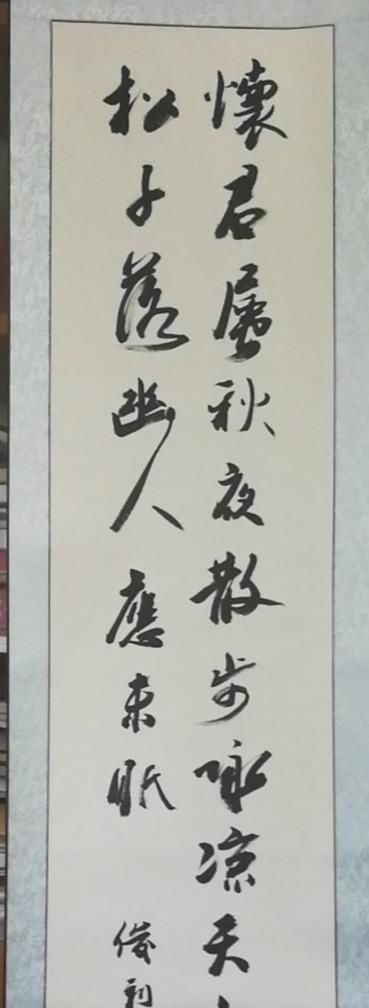 懷君屬秋夜散步咏凉天
松子落幽人應未眠
俊利